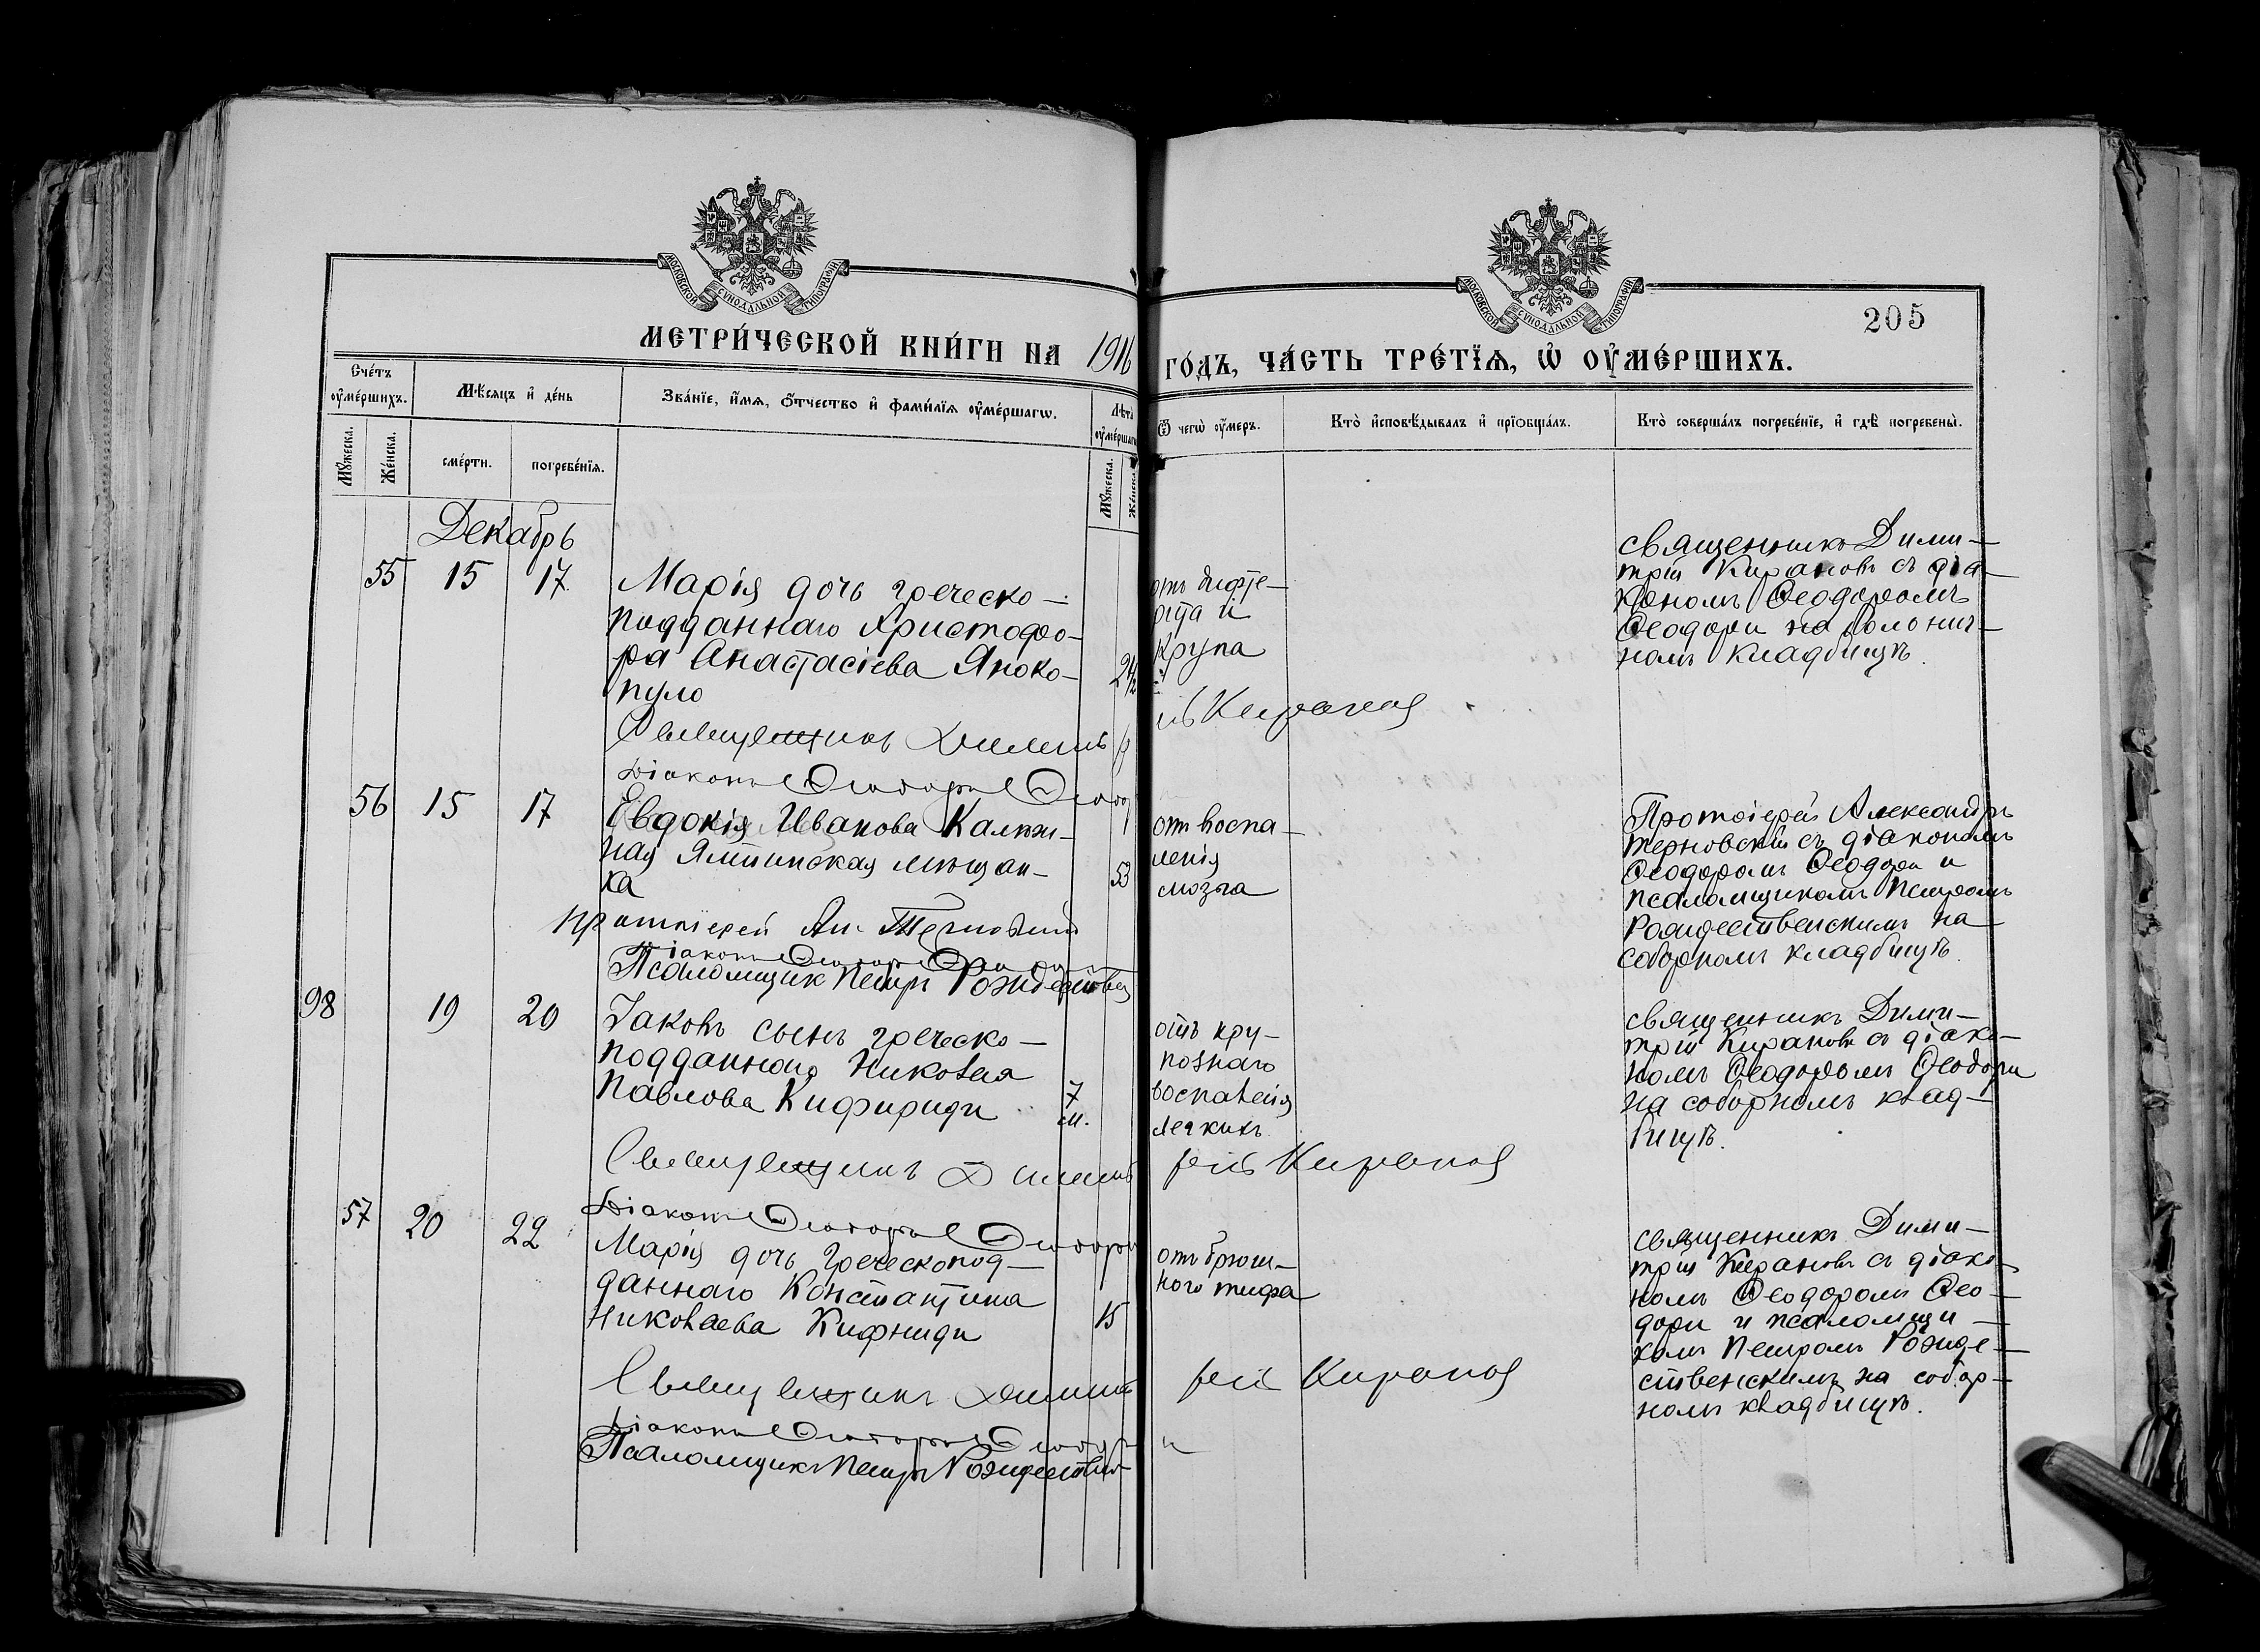 МОСКОВСКОЙ СѴНОДАЛЬНОЙ ТИПОГРАФІИ
МОСКОВСКОЙ СѴНОДАЛЬНОЙ ТИПОГРАФІИ
205
МЕТРИ́ЧЕСКОЙ КНИ́ГИ НА 1916 ГО́ДЪ, ЧА́СТЬ ТРЕ́ТЇѦ, Ѡ҆ ОУ҆МЕ́РШИХЪ.
Сче́тъ оу҆ме́ршихъ.
Мѣ́сяцъ и҆ де́нь
Зва́нїе, и҆́мѧ, ѻ҆́тчество и҆ фами́лїѧ оу҆ме́ршагѡ.
Лѣта оу҆ме́ршаг
Ѿ чегѡ̀ оу҆́меръ.
Кто̀ и҆сповѣ́дывалъ и҆ прїѡбща́лъ.
Кто̀ соверша́лъ погребе́нїе, и҆ гдѣ̀ погребены̀.
Мꙋ́жеска.
Же́нска.
сме́рти.
погребе́нїѧ.
Мꙋ́жеска.
Же́нска
Декабрь
55 15 17
Марія дочь греческо-
подданнаго Христофо-
ра Анастасіева Яноко-
пуло
2 1/2
отъ дифте-
рита и
крупа
священникъ Дими-
трій Кирановъ съ діа-
кономъ Ѳеодоромъ
Ѳеодори на
номъ кладбищѣ.
Священникъ Димит рій Кирановъ
Діаконъ Ѳеодоръ Ѳеодор
56 15 17
Евдокія Иванова
ная Ялтинская мѣщан-
ка
53
отъ воспа-
ленія
мозга
Протоіерей Александръ
Терновскій съ діакономъ
Ѳеодоромъ Ѳеодори и
псаломщикомъ Петромъ
Рождественскимъ на
соборномъ кладбищѣ.
Протоіерей Ал. Терновскій
Діаконъ Ѳеодоръ Ѳеодори
Псаломщик Петръ Рождествен
98 19 20
Іаковъ сынъ греческо-
подданнаго Николая
Павлова Кифириди
7 м.
отъ кру-
познаго
воспаленія
легкихъ
священникъ Дими-
трій Кирановъ съ діако-
номъ Ѳеодоромъ Ѳеодори
на соборномъ клад-
бищѣ.
Священникъ Димит рій Кирановъ
Діаконъ Ѳеодоръ Ѳеодори
57 20 22
Марія дочь греческопод-
даннаго Константина
Николаева Кифниди
15
отъ брюш-
ного тифа
священникъ Дими-
трій Кирановъ съ діако-
номъ Ѳеодоромъ Ѳео-
дори и псаломщи-
комъ Петромъ Рожде-
ственскимъ на собор-
номъ кладбищѣ.
Священникъ Димит рій Кирановъ
Діаконъ Ѳеодоръ Ѳеодор и
Псаломщикъ Петръ Рождествен